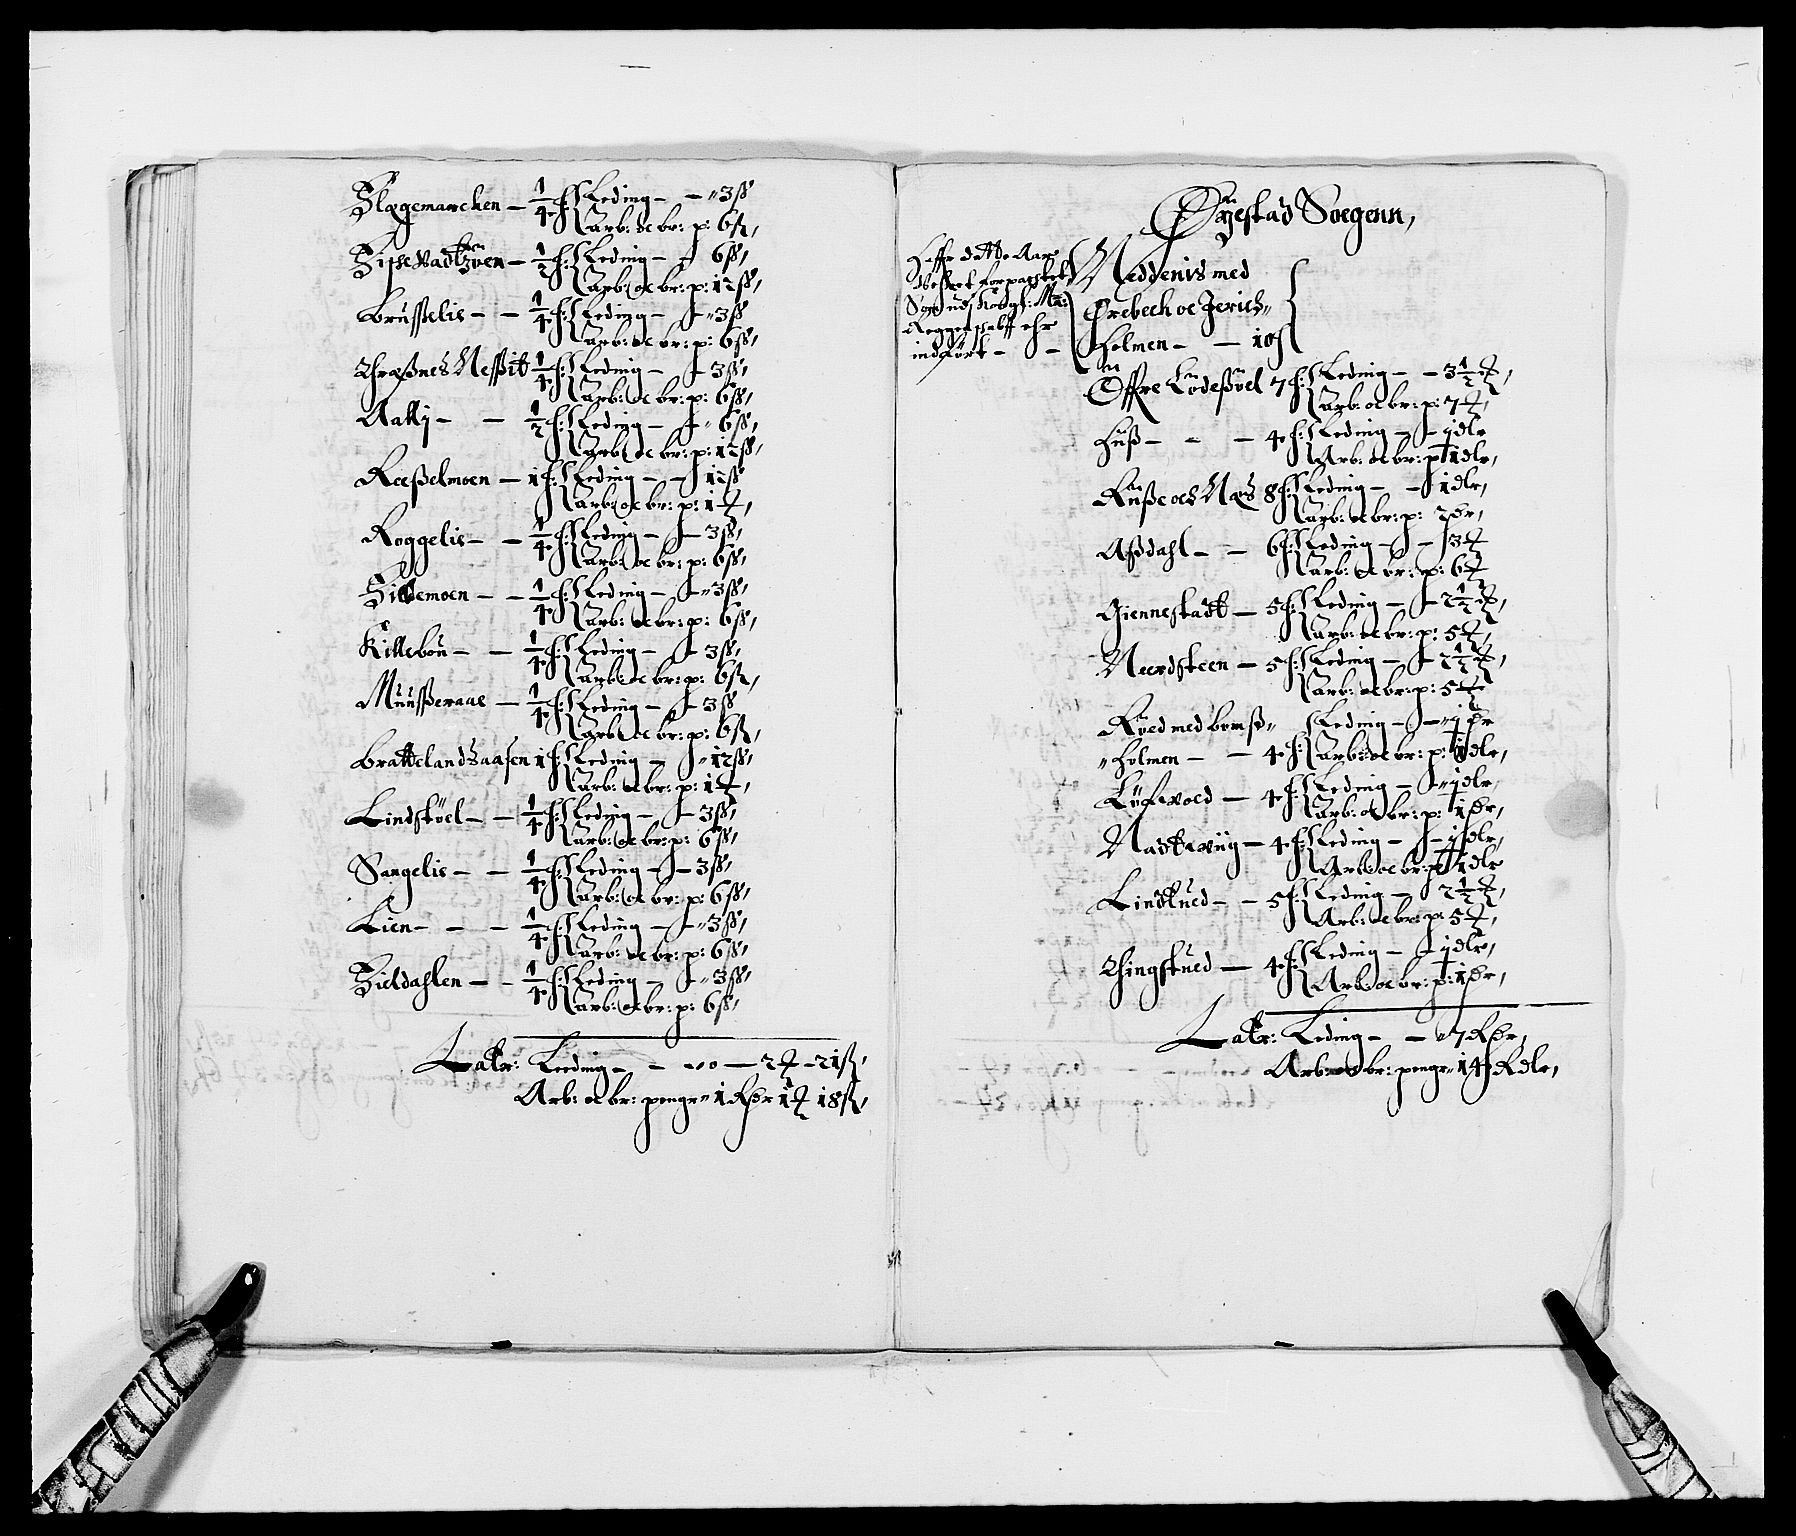 Slogemarchen — 1/4 h: Leding — — 3 ß
arb: oc br: p: 6 ß,
— 1/2 h: Leding — 6 ß,
arb: oc br: p: 12 ß,
Brusselis — — 1/4 h: Leding — 3 ß
arb: oc br: p: 6 ß,
1/4 h: Leding — 3 ß,
arb: oc br: p: 6 ß,
— — 1/2 h: Leding — 6 ß,
arb: oc br: p: 12 ß,
Reeßelmoen — 1 h: Leding — — 12 ß
arb: oc br: p: 1 ₰,
Roggelis — — 1/4 h: Leding — 3 ß,
arb: oc br: p: 6 ß,
— — 1/4 h: Leding — 3 ß,
arb: oc br: p: 6 ß,
Killebou — — 1/4 h: Leding — 3 ß,
arb: oc br: p: 6 ß,
Muusseraae — 1/4 h: Leding — 3 ß
arb: oc br: p: 6 ß,
Brattelandsaasen 1 h: Leding — 12 ß,
arb: oc br: p: 1 ₰,
Lindstöel — — 1/4 h: Leding — 3 ß,
arb: oc br: p: 6 ß,
Sangelis — — 1/4 h: Leding — 3 ß,
arb: oc br: p: 6 ß,
Lien — — — 1/4 h: Leding — 3 ß,
arb: oc br: p: 6 ß,
Sieldahlen — — 1/4 h: Leding — 3 ß,
arb: oc br: p: 6 ß,
Latr: Leeding — — 2 ₰ — 21 ß,
Arb: oc br: pengr 1 Rdr 1 ₰ 18 ß,
Øyestad Soegenn,
Haffr dette Aar
Kongl: Ma:
Reggenskaff ehr
indført — —
Neddenis med
Ørebech oc Jerichs
Holmen — — 10 h
Øffre Lödeßöel 7 h: Leding — — 3 1/2 ₰,
arb: oc br: p: 7 ₰,
Huß — — — 4 h: Leding — 1 dlr
Arb: oc br: p: 1 dlr,
8 h: Leding — — 1 dlr,
arb: oc br: p: 2 dr,
Aßdahl — — 6 h: Leding — — 3 ₰
arb: oc br: p: 6 ₰
Giennestadt — 5 h: Leding — 2 1/2 ₰,
arb: oc br: p: 5 ₰,
Neersteen — 5 h: Leding — 2 1/2 ₰,
arb: oc br: p: 5 ₰
Röed med bomß Leding — 1 dr
Holmen — — 4 h: arb: oc br: p: 1 dlr,
— 4 h: Leding — 1 dlr,
arb: oc br: p: 1 dr,
Nattewiig — 4 h: Leding — 1 dlr,
Arb: oc br: p: 1 dlr
Lindtued — — 5 h: Leding — 2 1/2 ₰,
Arb: oc br: p: 5 ₰,
Thingstued — 4 h: Leding — 1 dlr,
Arb: oc br: p: 1 dr,
Latr: Leding — — 7 Rdr,
Arb: oc br: pengr 14 Rdlr,